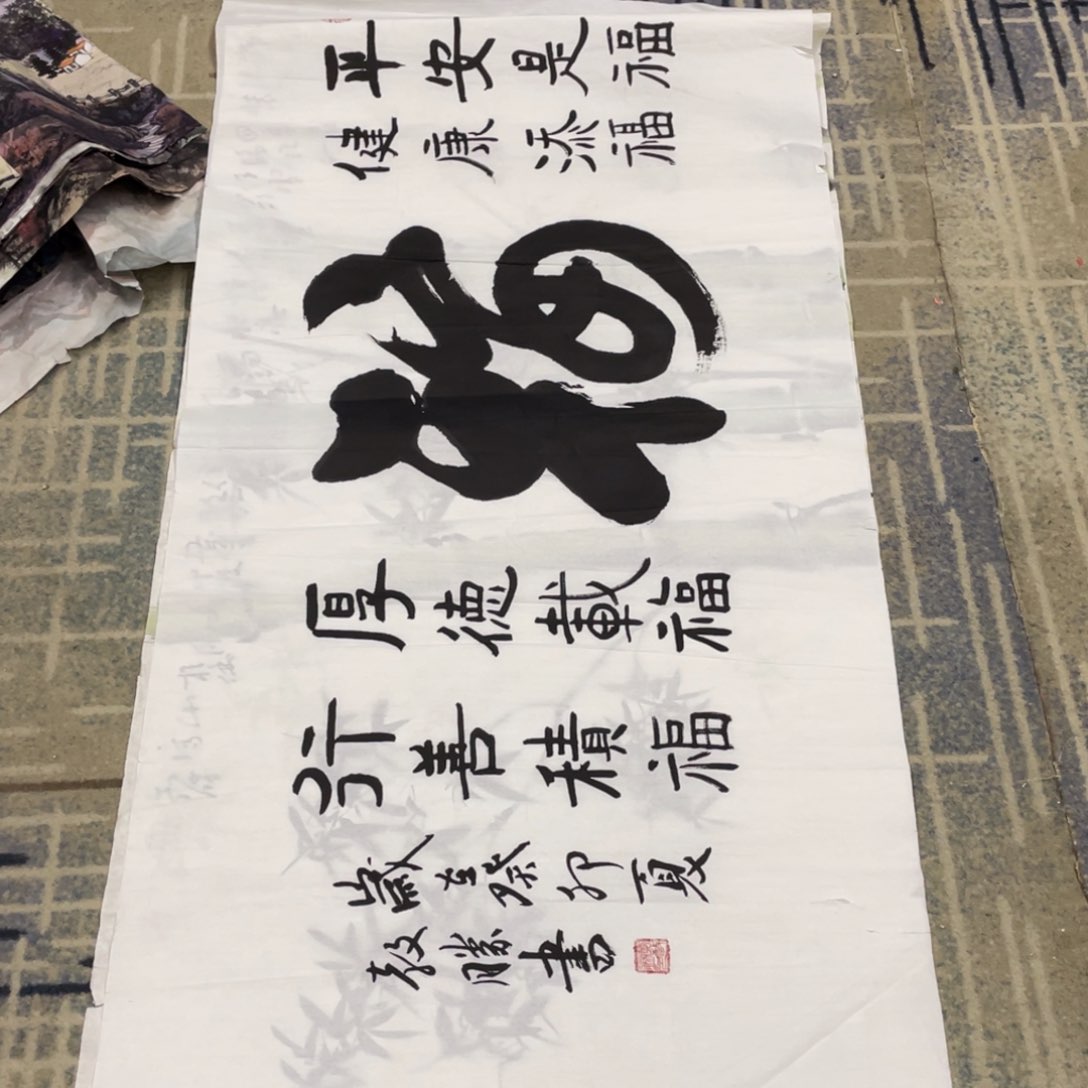 平安是福
健康添福
福
厚德載福
行善積福
歲在癸卯夏
勝書